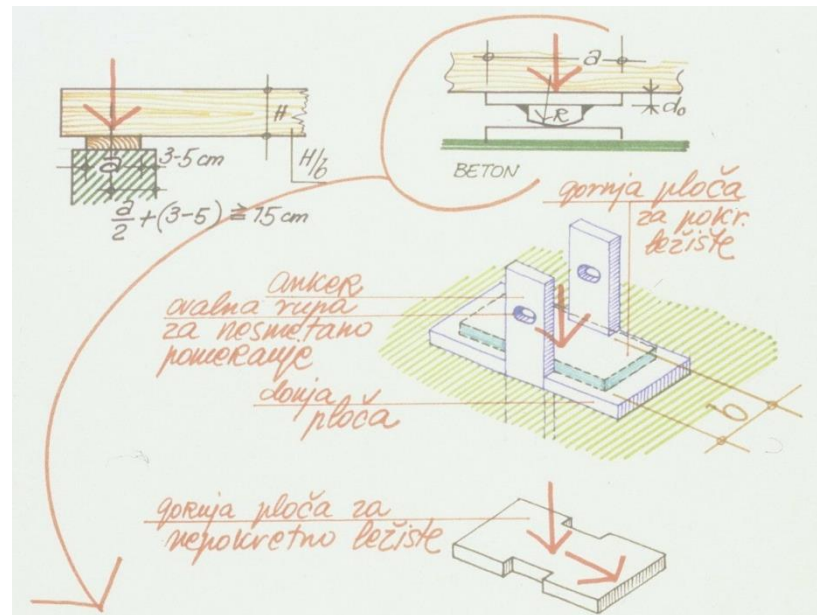 H
3-5 cm
a
H/b
a/2 + (3-5) ≧ 15 cm
a
d₀
R
BETON
gornja ploča
za pokr.
ležište
anker
ovalna rupa
za nesmetano
pomeranje
donja
ploča
b
gornja ploča za
nepokretno ležište